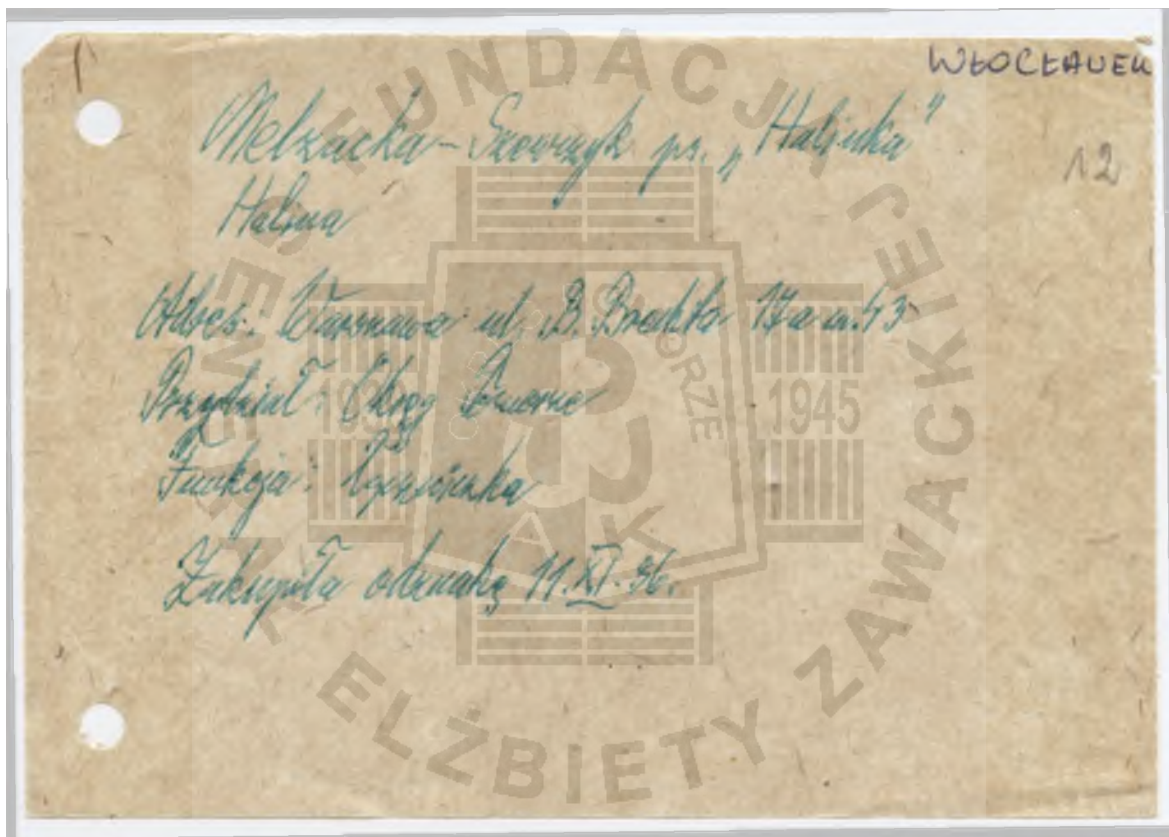 WŁOCŁAWEK
12
Melzacka - Szewczyk ps. „Halinka"
Halina
Adres: Warszawa ul. B. 17a m. 43
Przydział: Okręg Pomorze
Funkcja: Łączniczka
Zakupiła odznakę 11.XI.96.
FUNDACJA GENERAŁ ELŻBIETY ZAWACKIEJ
POMORZE
1939
1945
AK